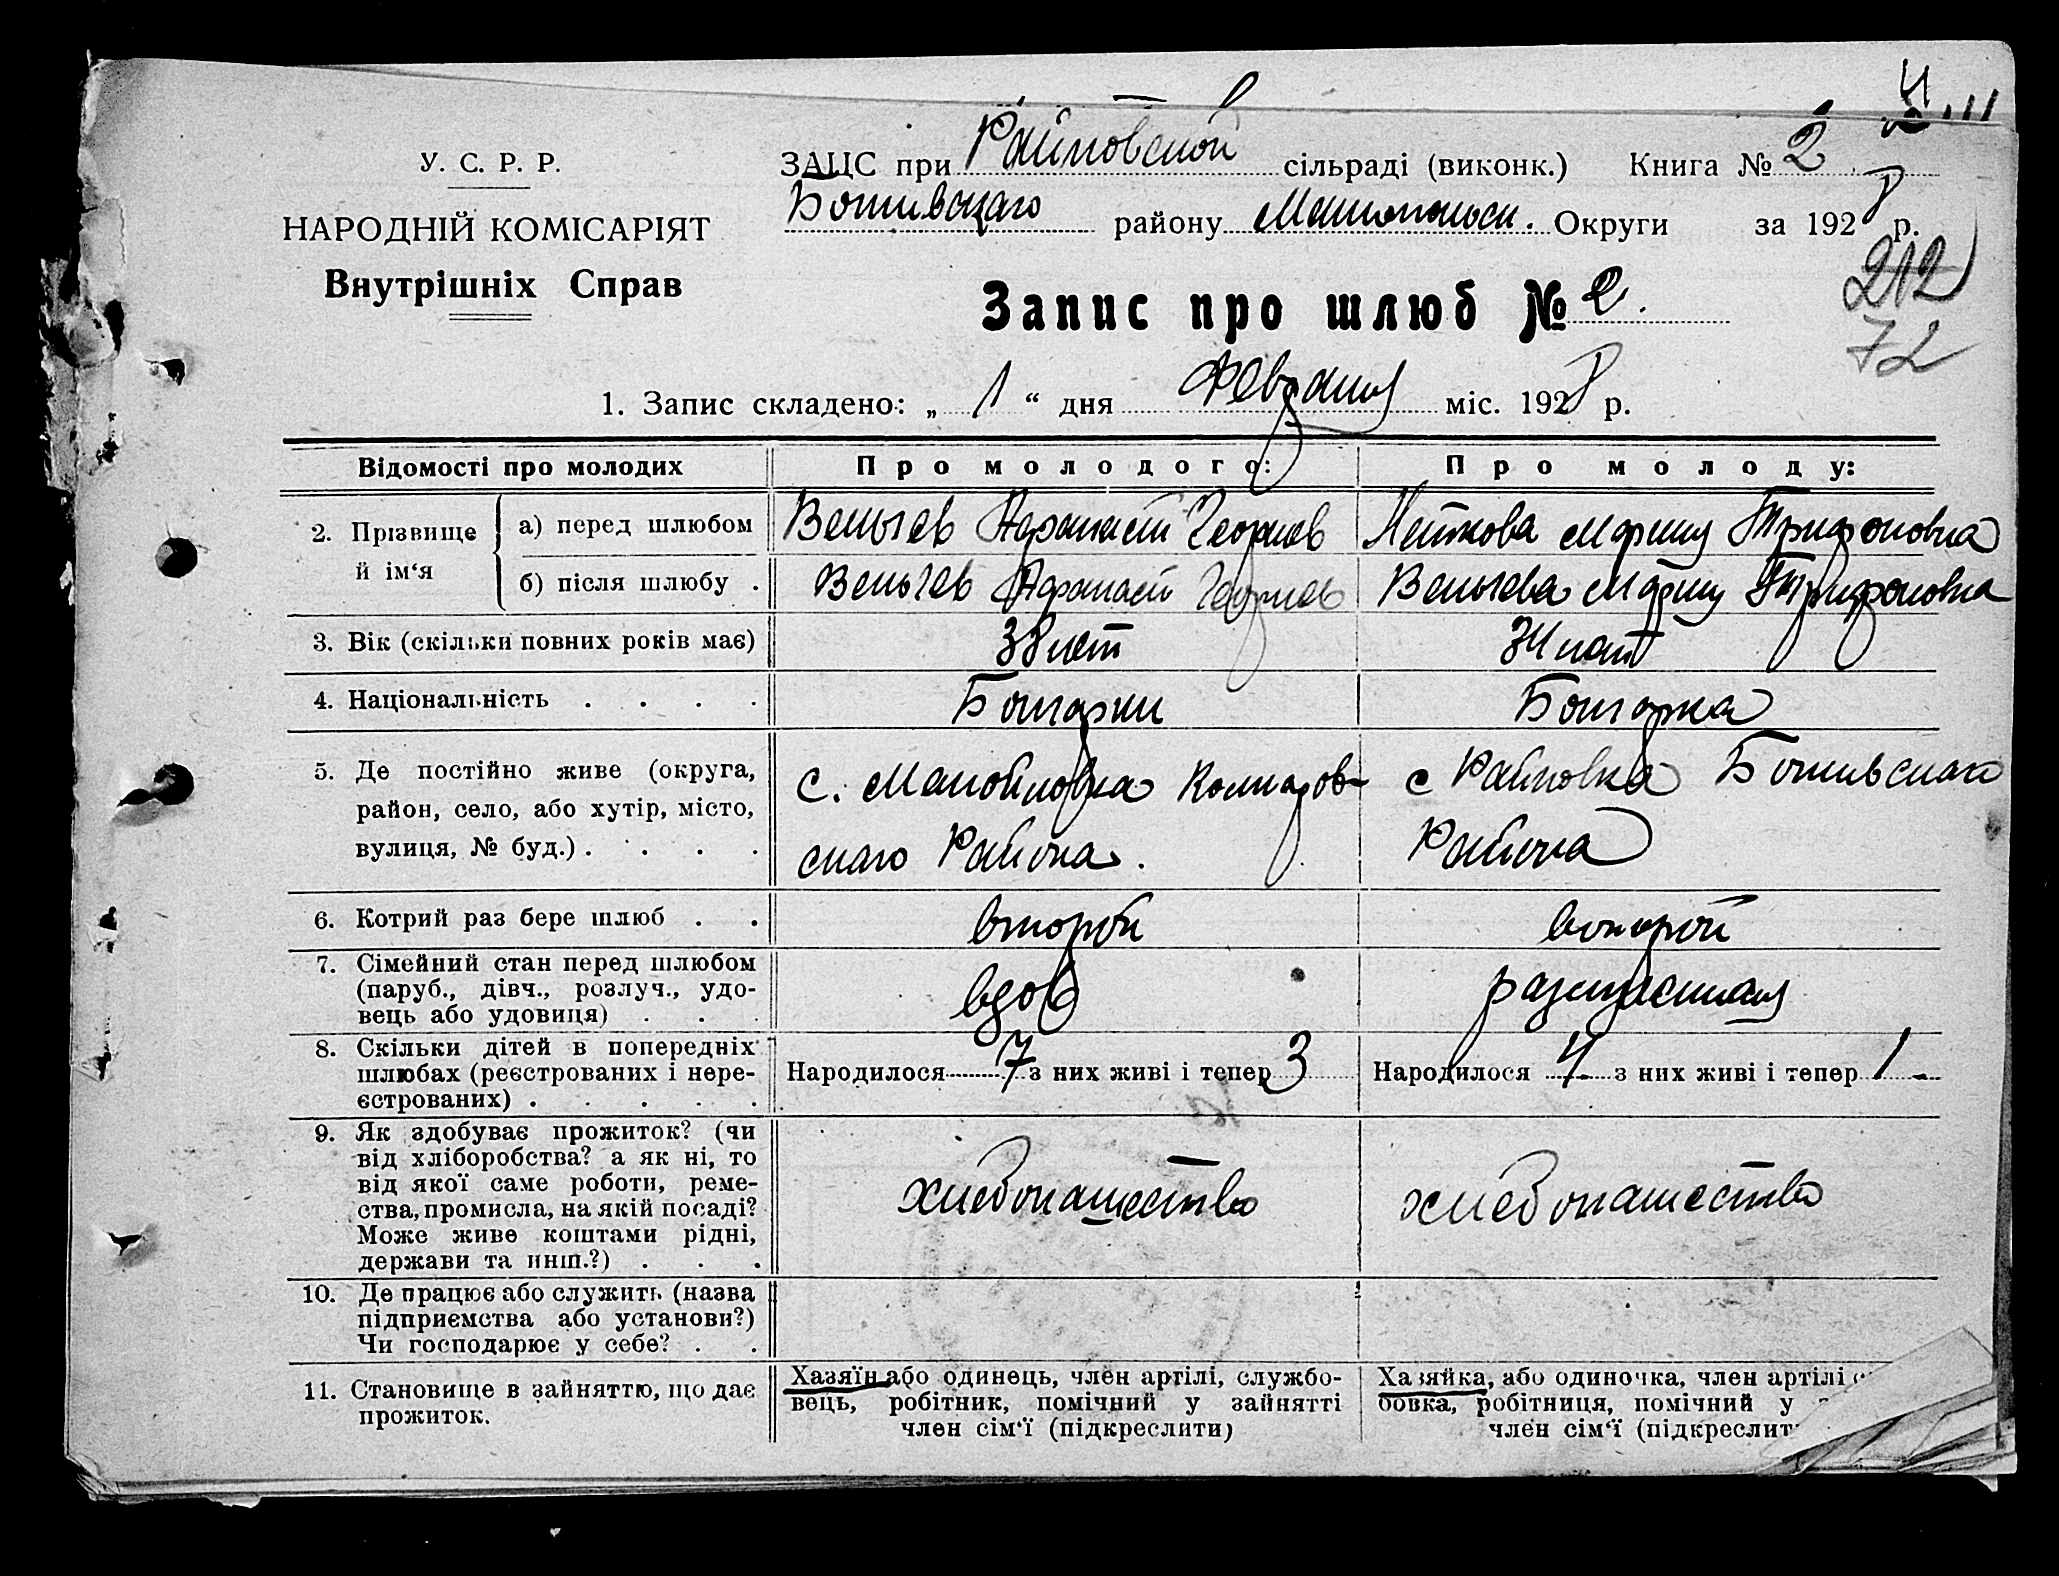 У. С. Р. Р.
НАРОДНІЙ КОМІСАРІЯТ
Внутрішніх Справ
ЗАЦС при Райновской сільраді (виконк.) Книга № 2
района Округи за 1928 р.
212
72
Запис про шлюб № 2.
1. Запис складено: „ 1 “ дня Февраля міс. 1928 р.
Відомості про молодих
Про молодого:
Про молоду:
2. Прізвище й ім‘я
а) перед шлюбом
Вельчев Афанасий Георгиев
Мария Трифоновна
б) після шлюбу .
Вельчев Афанасий Георгиев
Вельчева Мария Трифоновна
3. Вік (скільки повних років має)
38 лет
34 лет
4. Національність . . . .
Болгарин
Болгарка
5. Де постійно живе (округа,
район, село, або хутір, місто,
вулиця, № буд.) . . . .
с. Мануйловка Коларов-
скаго Района.
с Райновка
Района
6. Котрий раз бере шлюб . .
второй
второй
7. Сімейний стан перед шлюбом
(паруб., дівч., розлуч., удо-
вець або удовиця) . .
вдов
8. Скільки дітей в попередніх
шлюбах (реєстрованих і нере-
єстрованих) . . . . .
Народилося 7 з них живі і тепер 3
Народилося 4 з них живі і тепер 1
9. Як здобуває прожиток? (чи
від хліборобства? а як ні, то
від якої саме роботи, реме-
ства, промисла, на якій посаді?
Може живе коштами рідні,
держави та инш.?) . . .
хлебопашество
хлебопашество
10. Де працює або служить (назва
підприємства або установи?)
Чи господарює у себе? . .
11. Становище в зайняттю, що дає
прожиток.
Хазяїн або одинець, член артілі, службо-
вець, робітник, помічний у зайнятті
член сім‘ї (підкреслити)
Хазяйка, або одиночка, член артілі
бовка, робітниця, помічний у
член сім‘ї (підкреслит